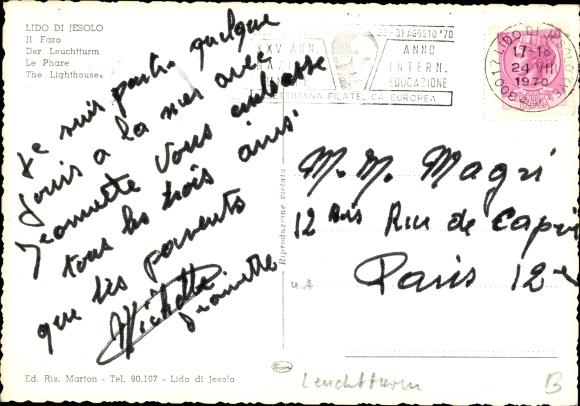 LIDO DI JESOLO
Il Faro
Der Leuchtturm
Le Phare
The Lighthouse
Je suis partie quelque
jours a la mer avec
Jeannette vous embrasse
tous les trois ainsi
que les parents
Michette
Jeannette
Ed. Ris. Marton - Tel. 90.107 - Lido di Jesolo
Riproduzione vietata
31 AGOSTO '70
XXV ANN.
ANNO
INTERN.
EDUCAZIONE
SETTIMANA FILATELICA EUROPEA
30017 LIDO DI JESOLO (VE)
17-18
24 VII
1970
M. M. Magri
12 Bis Rue de Capri
Paris 12e
Leuchtturm
B